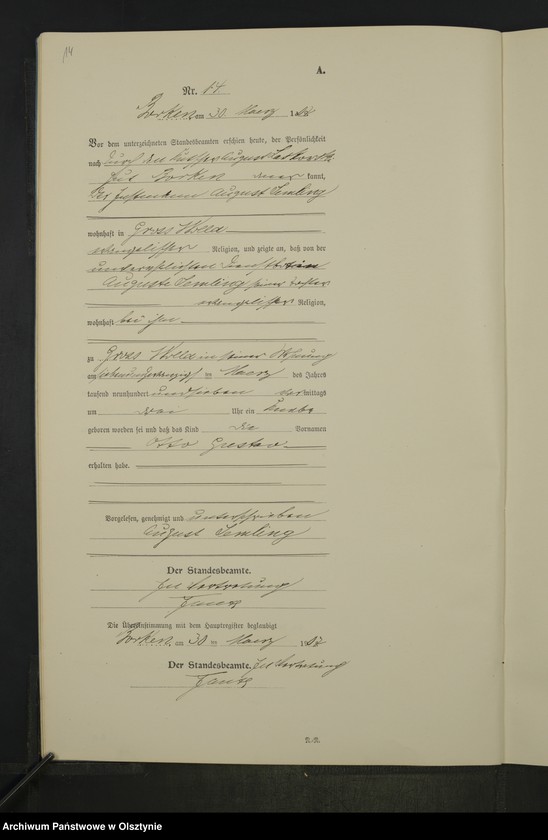 14
A.
Nr. 14
Borken am 30 Maerz 190
Vor dem unterzeichneten Standesbeamten erschien heute, der Persönlichkeit
nach durch den Kutscher August
aus Borken kannt,
der August Lemling
wohnhaft in Gross Wolla
evangelischer Religion, und zeigte an, daß von der
unverehelichten
Auguste Lemling seiner Tochter
evangelischer Religion,
wohnhaft bei ihm
zu Gross Wolla in seiner Wohnung
am siebenundzwanzigsten Maerz des Jahres
tausend neunhundert und sieben mittags
um Uhr ein Knabe
geboren worden sei und daß das Kind die Vornamen
Otto Gustav
erhalten habe.
Vorgelesen, genehmigt und unterschrieben
August Lemling
Der Standesbeamte.
In Vertretung
Die Übereinstimmung mit dem Hauptregister beglaubigt
Borken, am 30 ten Maerz 190
Der Standesbeamte. In Vertretung
Archiwum Państwowe w Olsztynie